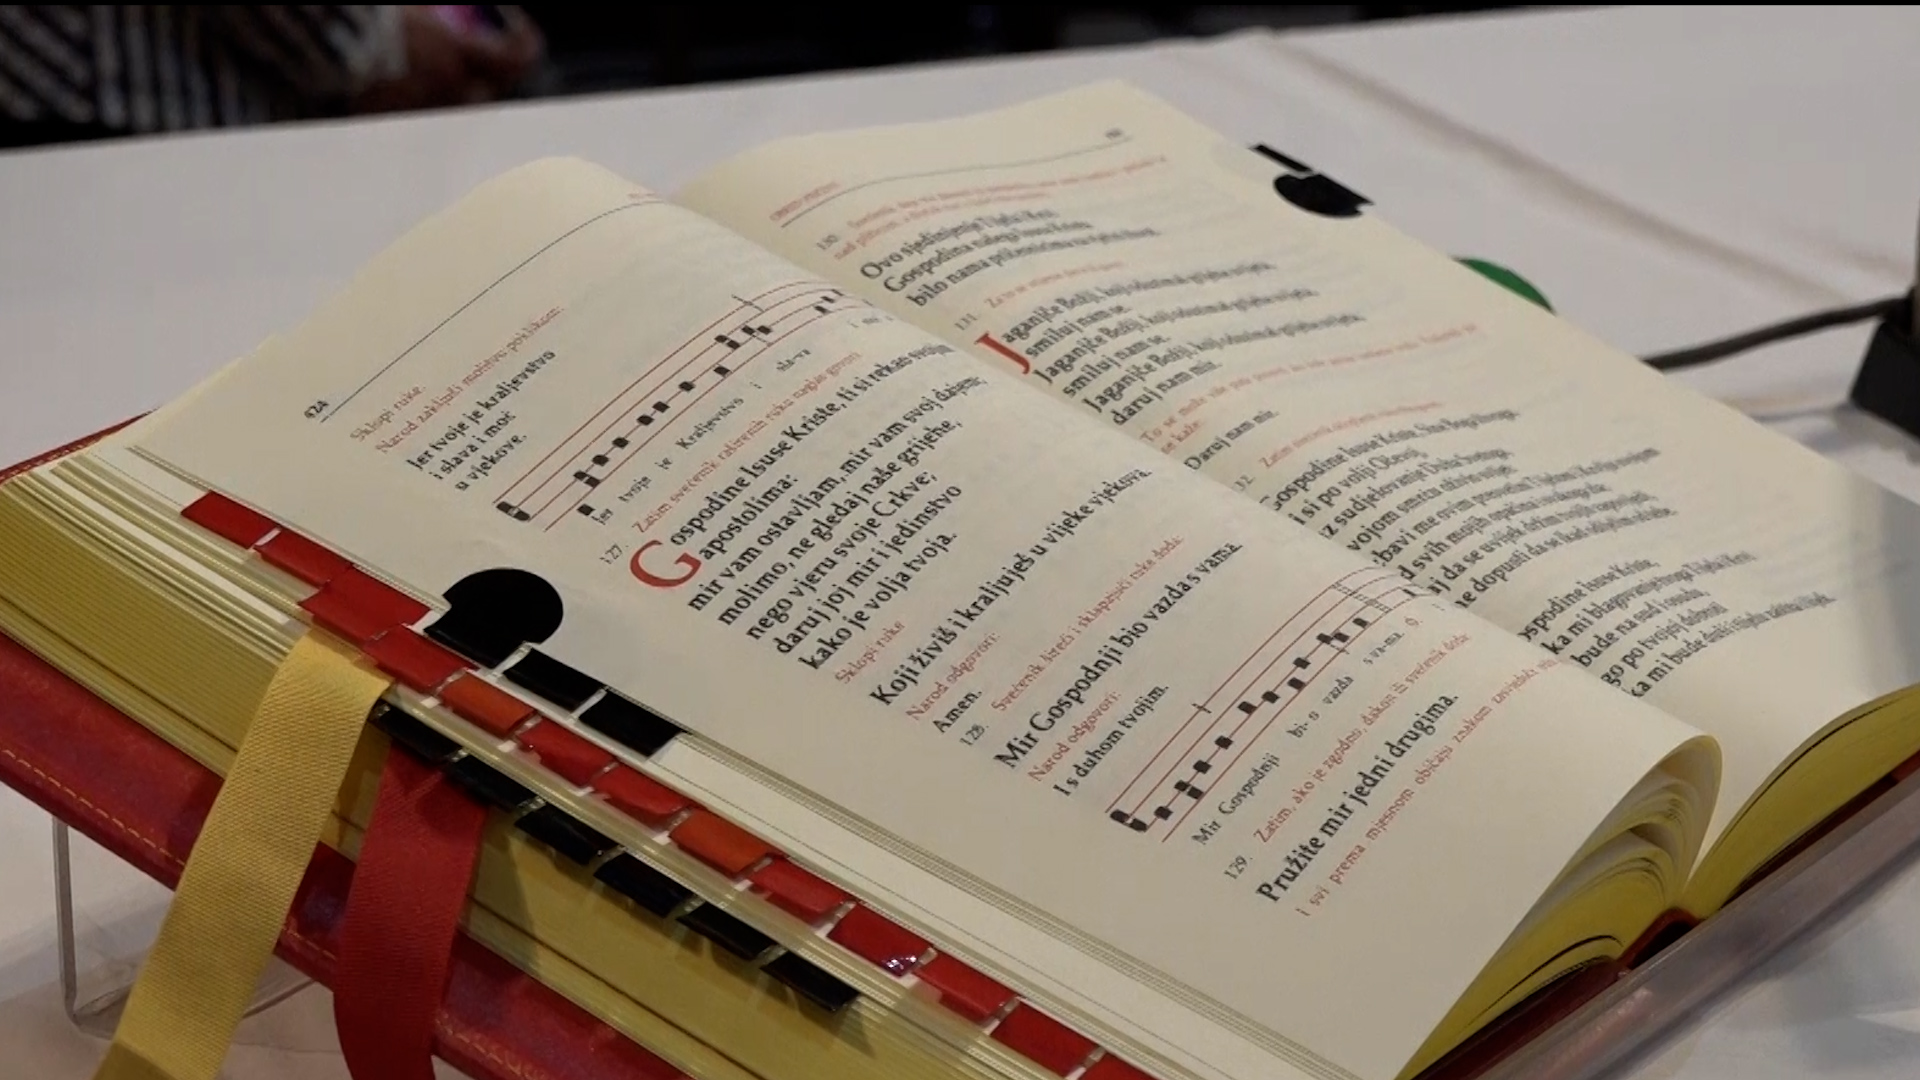 424
Sklopi ruke.
Narod zaključi molitvu poklikom:
Jer tvoje je kraljevstvo
i slava i moć
u vjekove.
Jer tvoje je Kraljevstvo i sla-va
127. Zatim svećenik raširenih ruku naglas govori
Gospodine Isuse Kriste, ti si rekao svojim
apostolima:
mir vam ostavljam, mir vam svoj dajem;
molimo, ne gledaj naše grijehe,
nego vjeru svoje Crkve;
daruj joj mir i jedinstvo
kako je volja tvoja.
Sklopi ruke
Koji živiš i kraljuješ u vijeke vjekova.
Narod odgovori:
Amen.
128. Svećenik šireći i sklapajući ruke doda:
Mir Gospodnji bio vazda s vama.
Narod odgovori:
I s duhom tvojim.
Mir Gospodnji bi-o vazda s va-ma.
129. Zatim, ako je zgodno, đakon ili svećenik doda:
Pružite mir jedni drugima.
i svi prema mjesnom običaju znakom
130.
Ovo sjedinjenje Tijela i Krvi
Gospodina našega Isusa Krista
bilo nama pričesnicima na vječni život.
131.
Jaganjče Božji, koji oduzimaš grijehe svijeta,
smiluj nam se.
Jaganjče Božji, koji oduzimaš grijehe svijeta,
smiluj nam se.
Jaganjče Božji, koji oduzimaš grijehe svijeta,
daruj nam mir.
se kaže:
Daruj nam mir.
Gospodine Isuse Kriste, Sine Boga živoga,
si po volji Očevoj,
sudjelovanje Duha Svetoga,
smrću oživio svijet:
me ovim presvetim Tijelom i Krvlju svojom
svih mojih
da se uvijek držim tvojih zapovijedi,
ne dopusti da se ikad odijelim od tebe.
Isuse Kriste,
ka mi blagovanje tvoga Tijela i Krvi
bude na sud i osudu,
go po tvojoj dobroti
ka mi bude